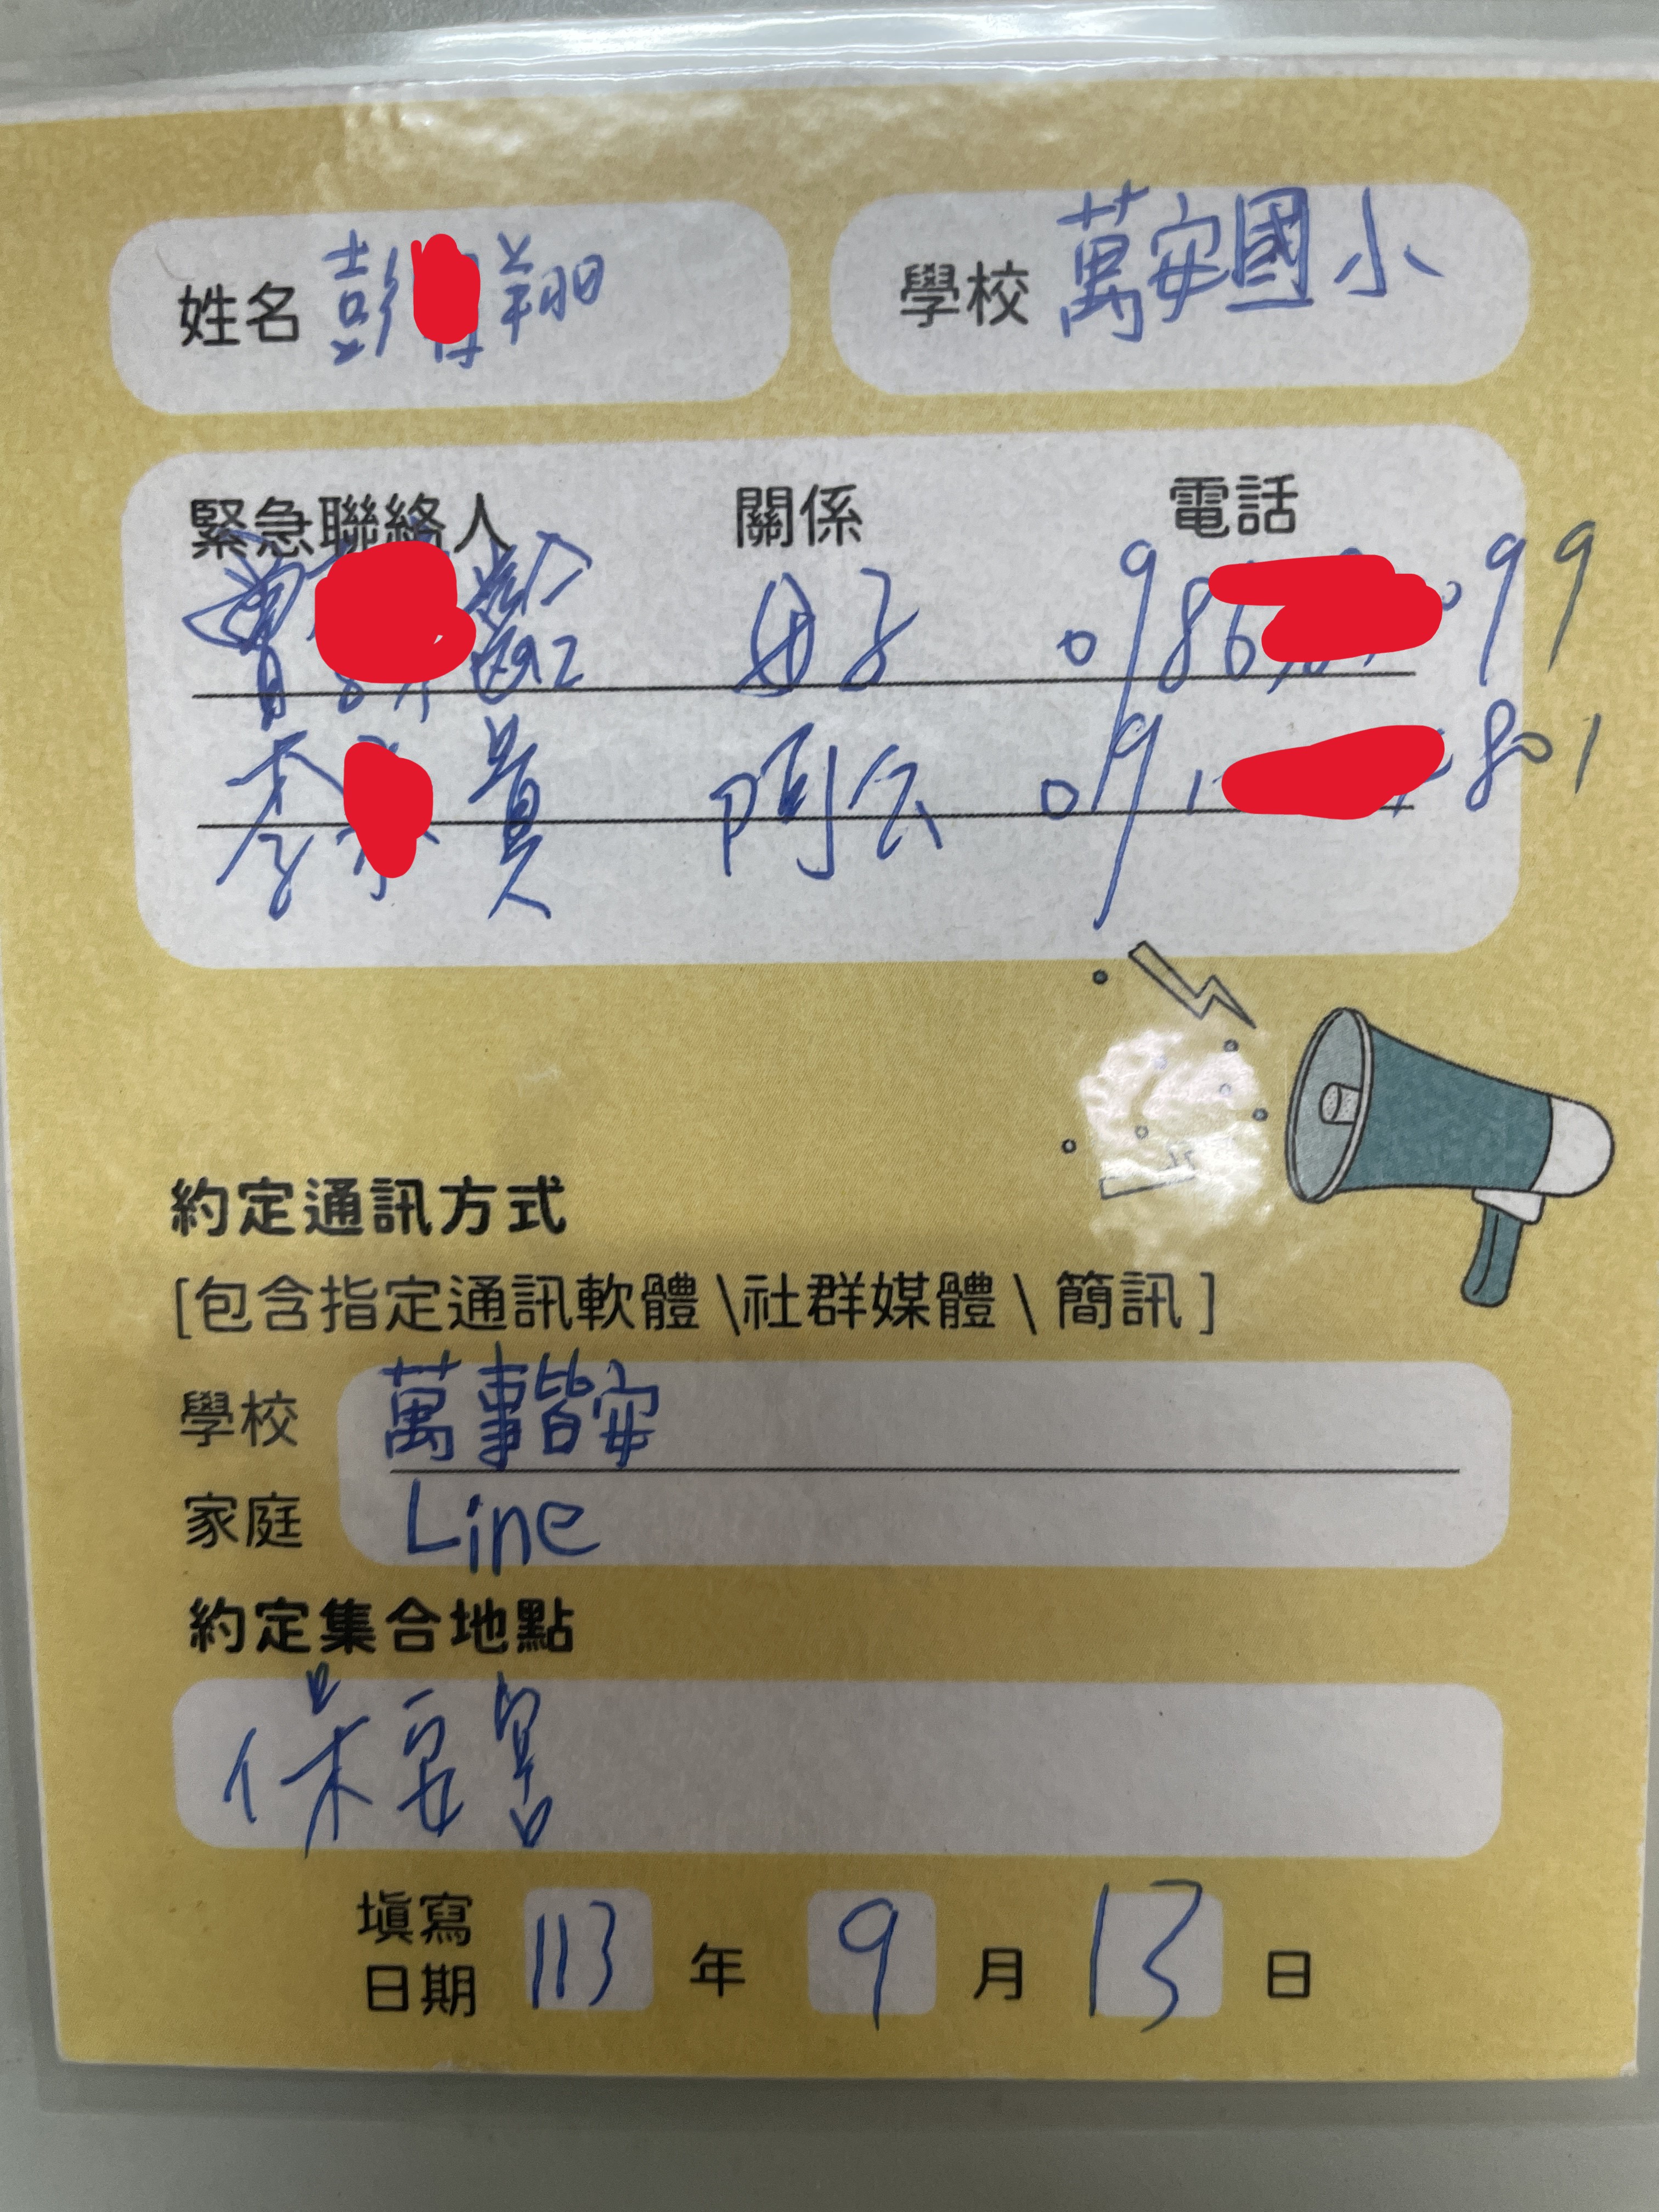 姓名 彭 翔
學校 萬安國小
緊急聯絡人 關係 電話
曾 0986 99
李 貴 阿公 091 801
約定通訊方式
[包含指定通訊軟體\社群媒體\簡訊]
學校 萬事皆安
家庭 Line
約定集合地點
保安宮
填寫日期 113 年 9 月 13 日